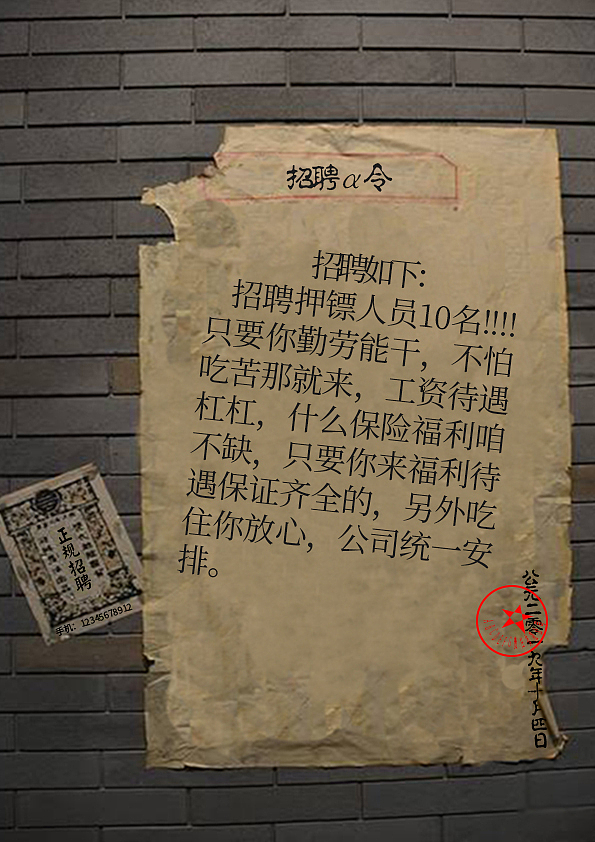 招聘α令
招聘如下:
招聘押镖人员10名!!!!
只要你勤劳能干，不怕
吃苦那就来，工资待遇
杠杠，什么保险福利咱
不缺，只要你来福利待
遇保证齐全的，另外吃
住你放心，公司统一安
排。
公元二零一九年十月四日
正规招聘
手机：12345678912